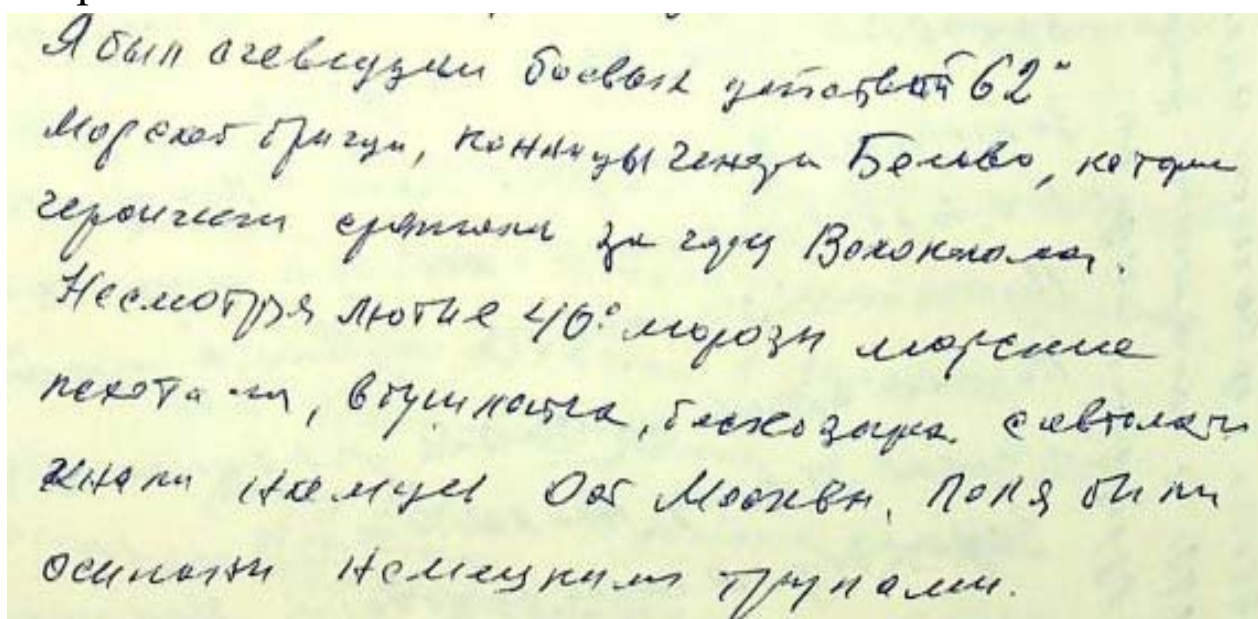 Я был очевидцем боевых действий 62й
Морской бригады, конницы генерала Белова, которые
героически сражались за город Волоколамск.
Несмотря лютые 40° морозы морские
пехотинцы, в бушлатах, бескозырках с автоматами
гнали немцев от Москвы. Поля были
усыпаны немецкими трупами.